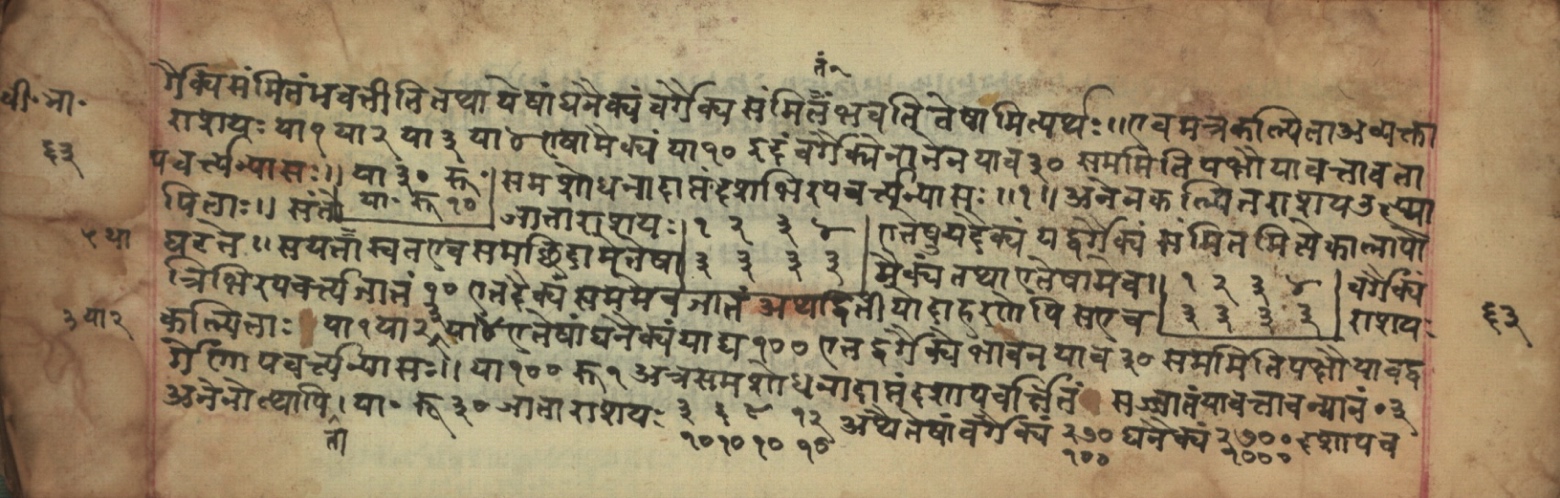 तं२
र्गैक्यिसंमितंभवतीति तथा येषां घनैक्यं वर्गैक्य संमितं भवति तेषामित्यर्थः॥ एवमत्रकल्पिता अव्यक्ता
वी॰ ना॰
राशयः या १ या २ या ३ या ४ एषामैक्यं या १० इदं वर्गैक्येनानेन याव ३० सममिति पक्षौ यावत्तावता
६३
पवर्त्त्य न्यासः॥ या ३० रू ॰ समशोधनादाप्तं दशभिरपवर्त्त्य न्यासः ॥१॥ अनेन कल्पितराशय उत्था
या ॰ रू १०
पिताः॥ जाताराशयः १ २ ३ ४ एतेषु यदैक्यं यद्वर्गैक्यं संमितमित्येकालापो
५ था
घटते॥ समछिदामेतेषा ३ ३ ३ ३ मैक्यं तथा एतेषामेव॥ १ २ ३ ४ वर्गैक्यं
त्रिभिरपवर्त्त्य जातं १० एतदैक्यं सममेव जातं अथ द्वितीयोदाहरणेपि सएव ३ ३ ३ ३ राशयः
३ या २
६३
कल्पिताः या १ या २ या ४ एतेषां घनैक्यं याघ १०० एतद्वर्गैक्ये याव ३० सममिति पक्षौ यावद्व
र्गेणापवर्त्त्य न्यासः॥ या १०० रू १ अत्र समशोधनादाप्तं दशापवर्त्तितं यावत्तावन्मानं ॰ ३
अनेनोत्थापि। या ॰ रू ३० जाताराशयः ३ ६ ९ १२ अथैतेषां वर्गैक्यं २७० घनैक्यं २७०० दशापव
ता
१० १० १० १० १०० १०००